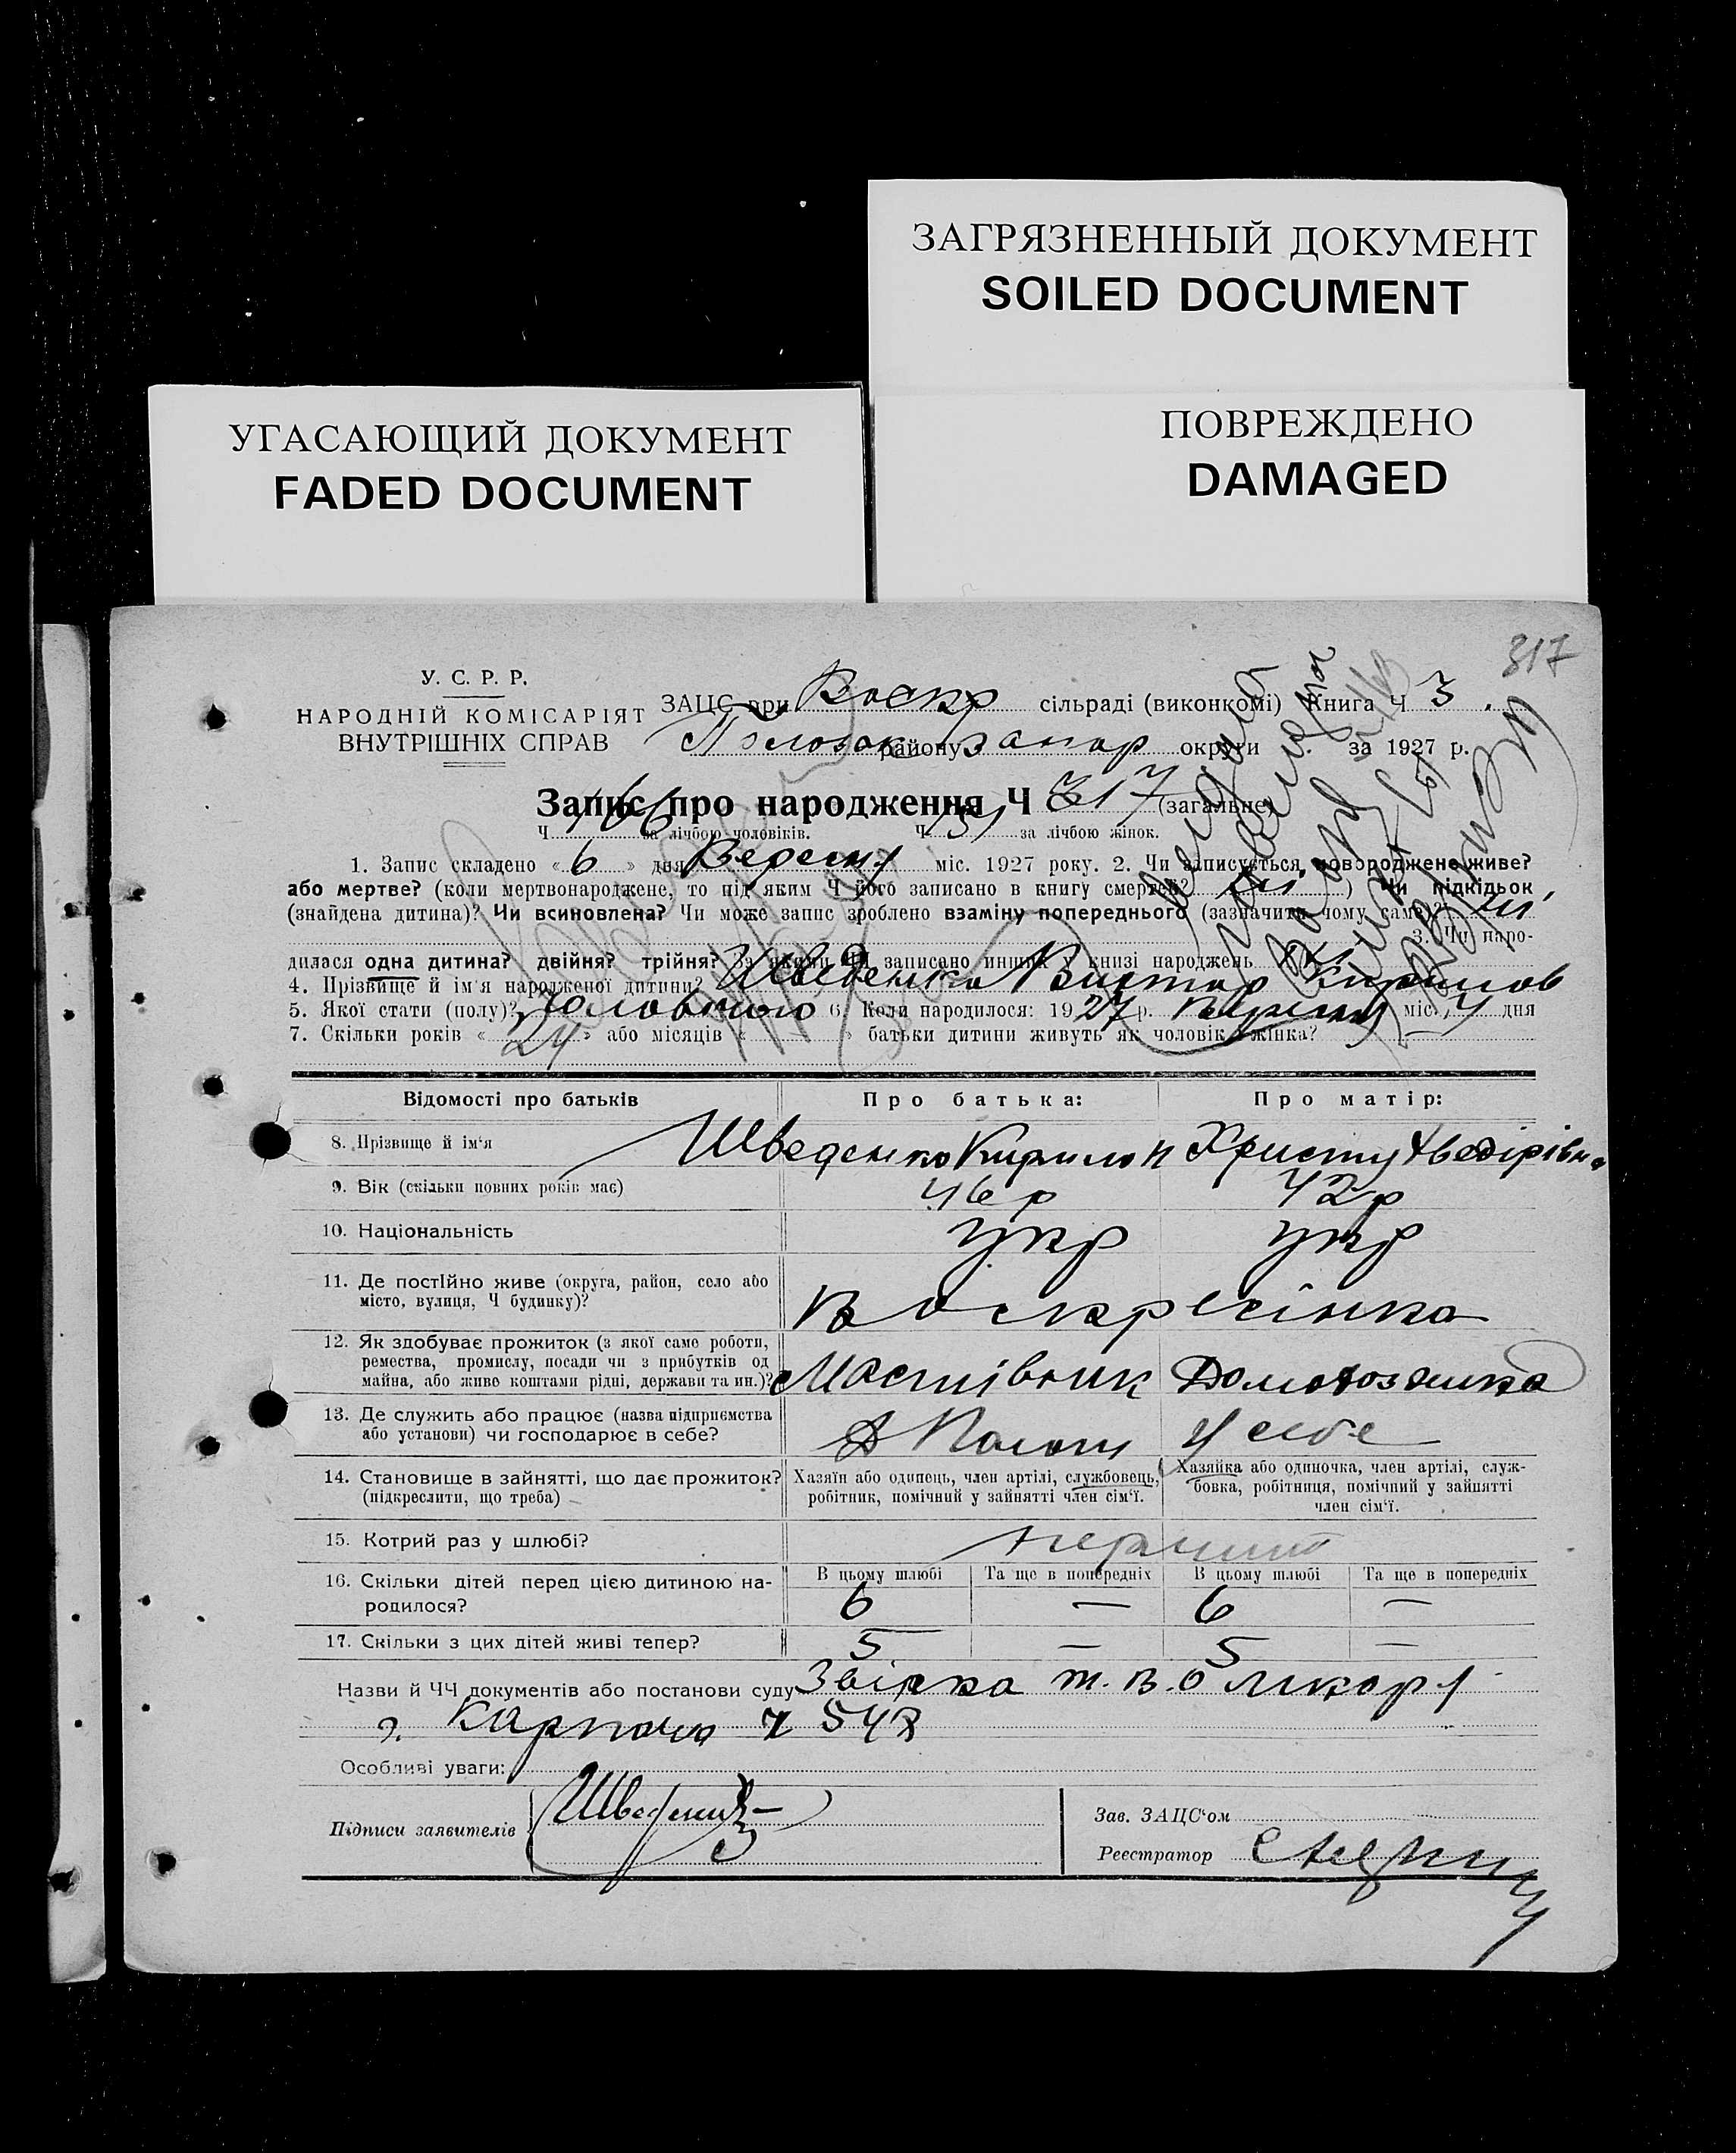 ЗАГРЯЗНЕННЫЙ ДОКУМЕНТ
SOILED DOCUMENT
УГАСАЮЩИЙ ДОКУМЕНТ
FADED DOCUMENT
ПОВРЕЖДЕНО
DAMAGED
317
У. С. Р. Р.
НАРОДНІЙ КОМІСАРІЯТ
ВНУТРІШНІХ СПРАВ
ЗАЦС при Воскр сільраді (виконкомі) Книга Ч 3.
Пологов району Запор округи за 1927 р.
Запис про народження Ч 317 (загальне)
Ч 166 за лічбою чоловіків. Ч 151 за лічбою жінок.
1. Запис складено « 6 » дня Вересня міс. 1927 року. 2. Чи записується новороджене живе?
або мертве? (коли мертвонароджене, то під яким Ч його записано в книгу смертей? ні ) Чи підкідьок
(знайдена дитина)? Чи всиновлена? Чи може запис зроблено взаміну попереднього (зазначити чому саме)? ні
3. Чи наро-
дилася одна дитина? двійня? трійня? За якими ЧЧ записано инших у книзі народжень
4. Прізвище й ім'я народженої дитини? Шведенко Виктор Кирилов
5. Якої стати (полу)? Чоловічого 6. Коли народилося: 1927 р. Вересня міс. 4 дня
7. Скільки років « 24 » або місяців « » батьки дитини живуть як чоловік і жінка?
Відомості про батьків Про батька: Про матір:
8. Прізвище й ім'я Шведенко Кирило й Христя Хведірівна
9. Вік (скільки повних років має) 46 р 42 р
10. Національність укр укр
11. Де постійно живе (округа, район, село або
місто, вулиця, Ч будинку)? Воскресінка
12. Як здобуває прожиток (з якої саме роботи,
ремества, промислу, посади чи з прибутків од
майна, або живе коштами рідні, держави та ин.)? Мастівник Домохозяика
13. Де служить або працює (назва підприємства
або установи) чи господарює в себе? Пологи У себе
14. Становище в зайнятті, що дає прожиток?
(підкреслити, що треба)
Хазяїн або одинець, член артілі, службовець,
робітник, помічний у зайнятті член сім'ї.
Хазяйка або одиночка, член артілі, служ-
бовка, робітниця, помічний у зайнятті
член сім'ї.
15. Котрий раз у шлюбі? перший
16. Скільки дітей перед цією дитиною на-
родилося?
В цьому шлюбі Та ще в попередніх В цьому шлюбі Та ще в попередніх
6 — 6 —
17. Скільки з цих дітей живі тепер? 5 — 5 —
Назви й ЧЧ документів або постанови суду Звістка т.в.о лікаря
Ч 547
Особливі уваги:
Підписи заявителів Шведенко
Зав. ЗАЦС'ом
Реєстратор